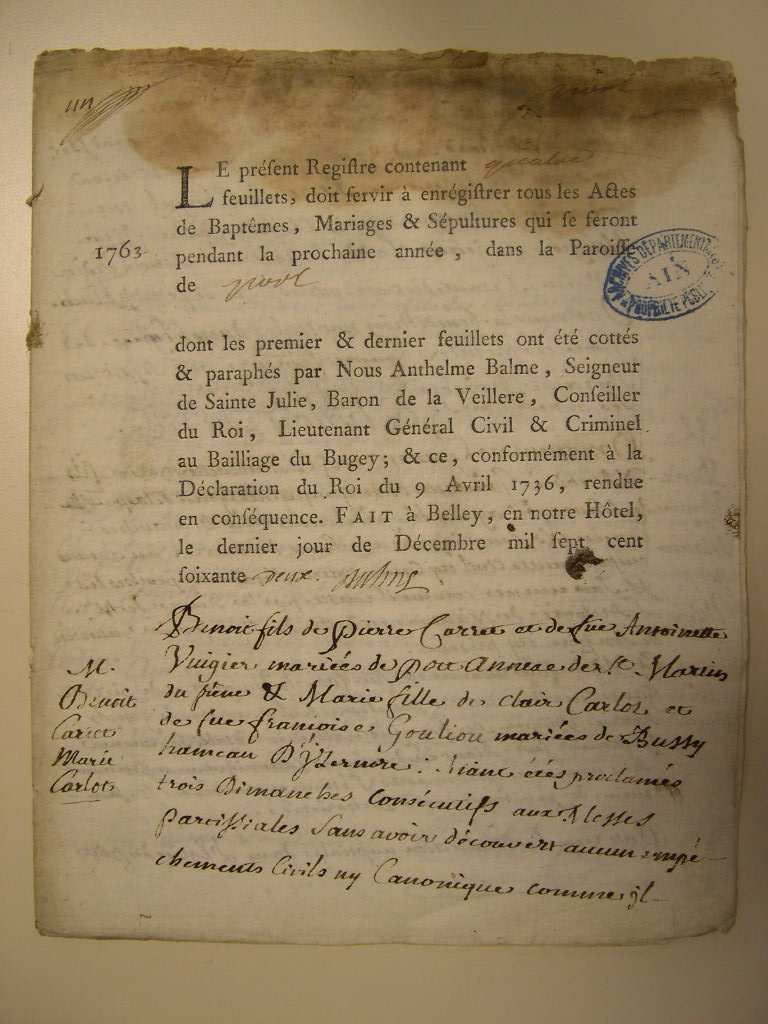 un
LE préſent Regiſtre contenant quatre
feuillets, doit ſervir à enrégiſtrer tous les Actes
de Baptêmes, Mariages & Sépultures qui ſe feront
1763 pendant la prochaine année, dans la Paroiſſe
de port
ARCHIVES DÉPARTEMENTALES
AIN
PROPRIÉTÉ PUBLIQUE
dont les premier & dernier feuillets ont été cottés
& paraphés par Nous Anthelme Balme, Seigneur
de Sainte Julie, Baron de la Veillere, Conſeiller
du Roi, Lieutenant Général Civil & Criminel
au Bailliage du Bugey; & ce, conformément à la
Déclaration du Roi du 9 Avril 1736, rendue
en conſéquence. FAIT à Belley, en notre Hôtel,
le dernier jour de Décembre mil ſept cent
ſoixante deux. Balme
Benoit fils de Pierre Carret et de fue Antoinette
M. Vuigier mariées de port annexe de st. Martin
Benoit du frene & Marie fille de clair Carlot et
Carret de fue françoise Gouliou mariées de Bussy
Marie hameau D'Yzernore : aiant étés proclamés
Carlot trois Dimanches consécutifs aux Messes
Paroissiales sans avoir découvert aucun empé-
chements Civils ny Canonique comme jl